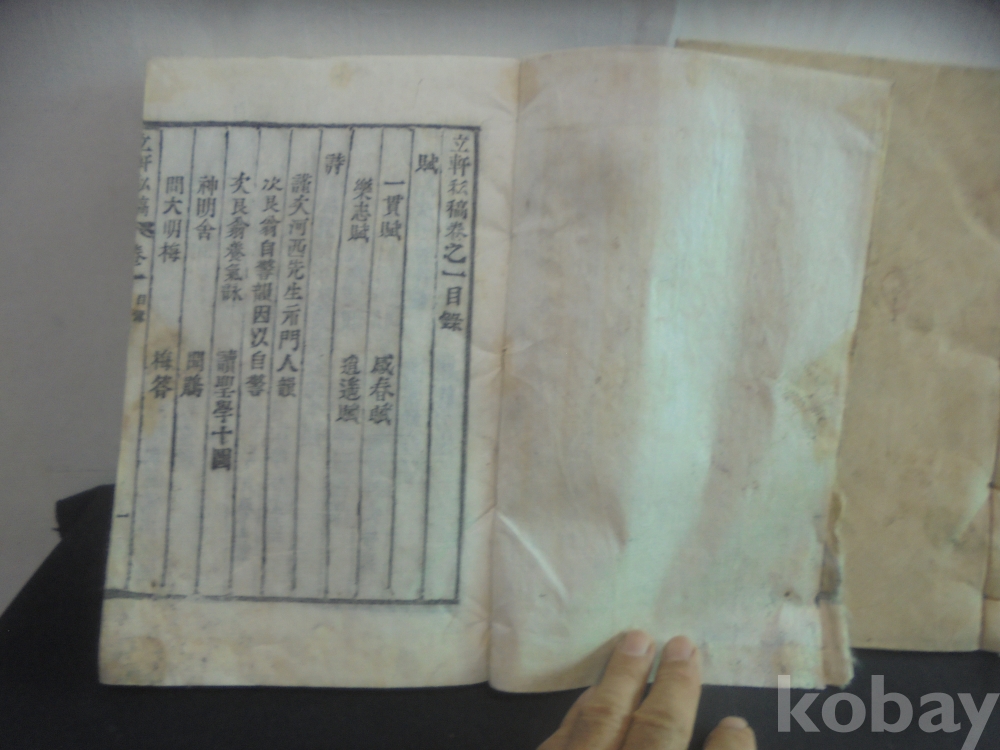 立軒私稿卷之一目錄
賦
一貫賦 感春賦
樂志賦 逍遥賦
詩
謹次河西先生示門人韻
次艮翁自警韻因以自警
次艮翁養氣詠 讀聖學十圖
神明舍 聞鷄
問大明梅 梅答
立軒私稿 卷一 目錄 一
kobay